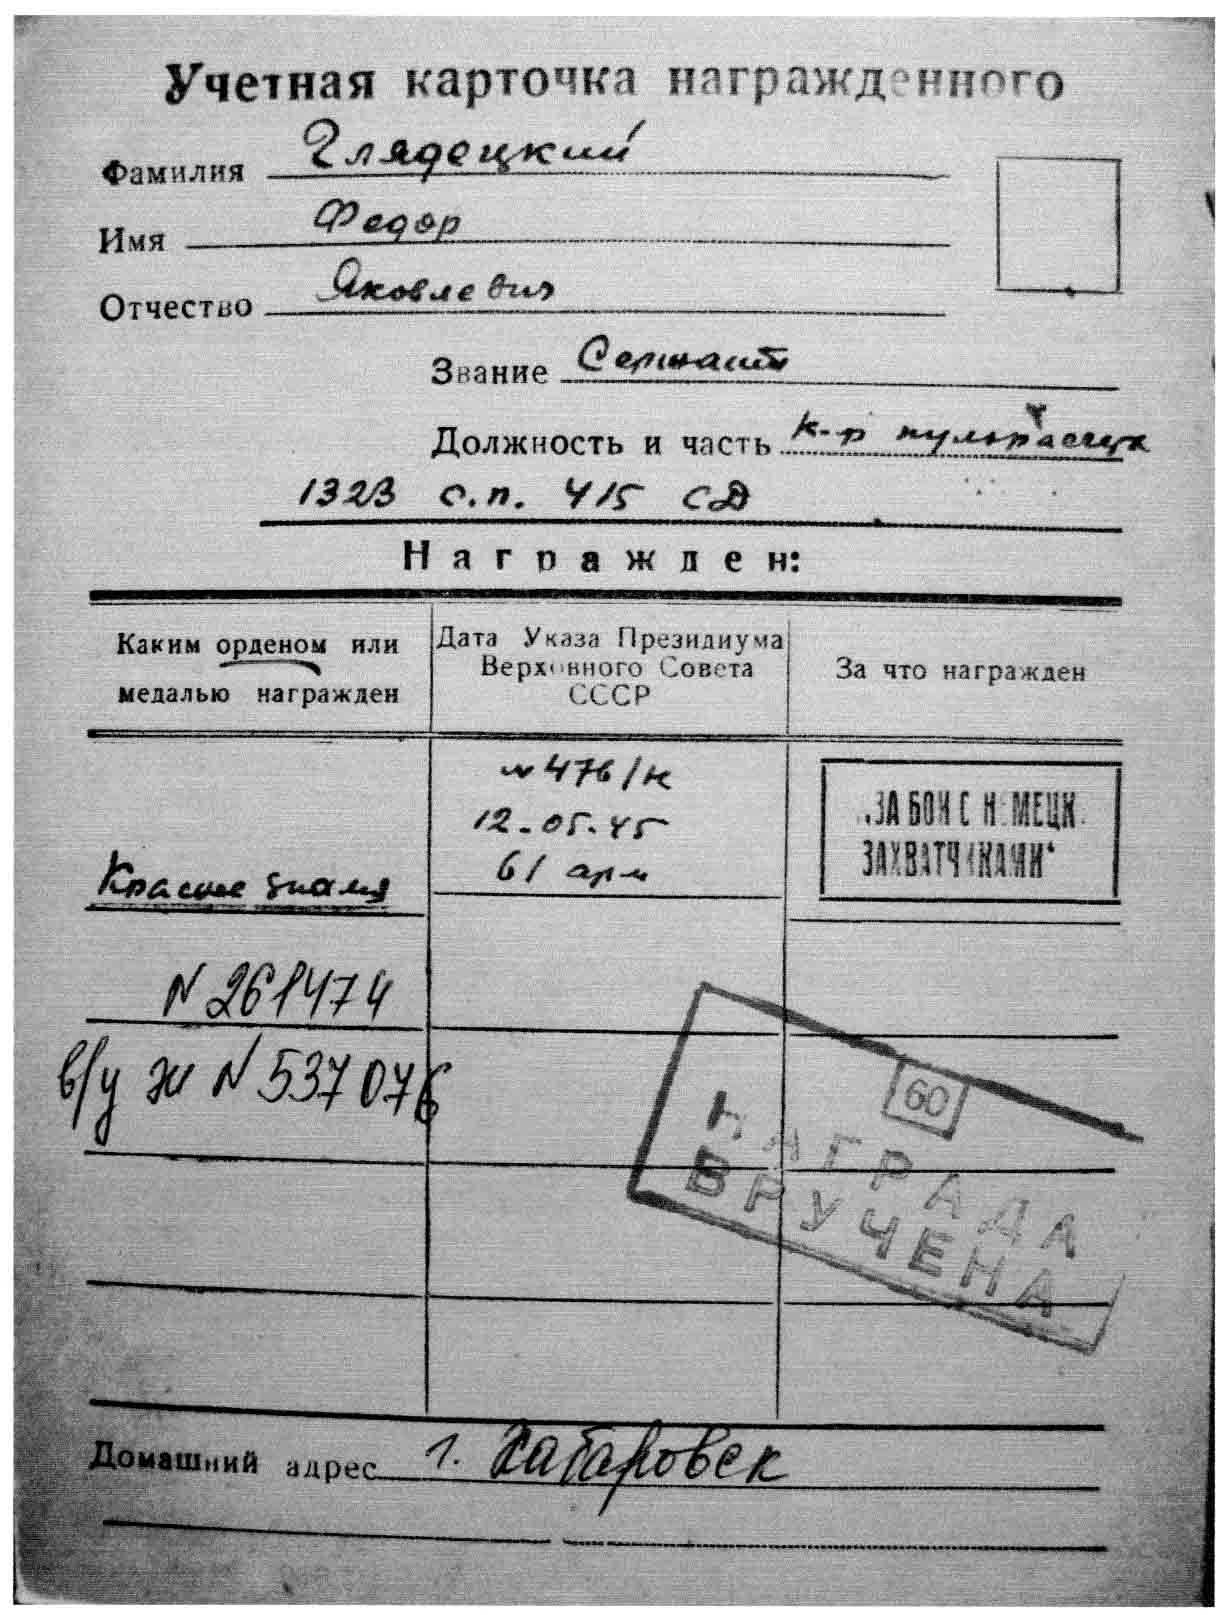 Учетная карточка награжденного
Фамилия Глядецкий
Имя Федор
Отчество Яковлевич
Звание Сержант
Должность и часть к-р пульрасчета
1323 с.п. 415 СД
Награжден:
Каким орденом или
медалью награжден
Дата Указа Президиума
Верховного Совета
СССР
За что награжден
Красное знамя
N 476/н
12.05.45
61 арм
„ЗА БОИ С НЕМЕЦК.
ЗАХВАТЧИКАМИ“
N 261474
в/у Ж N 537076
60
НАГРАДА
ВРУЧЕНА
Домашний адрес г. Хабаровск